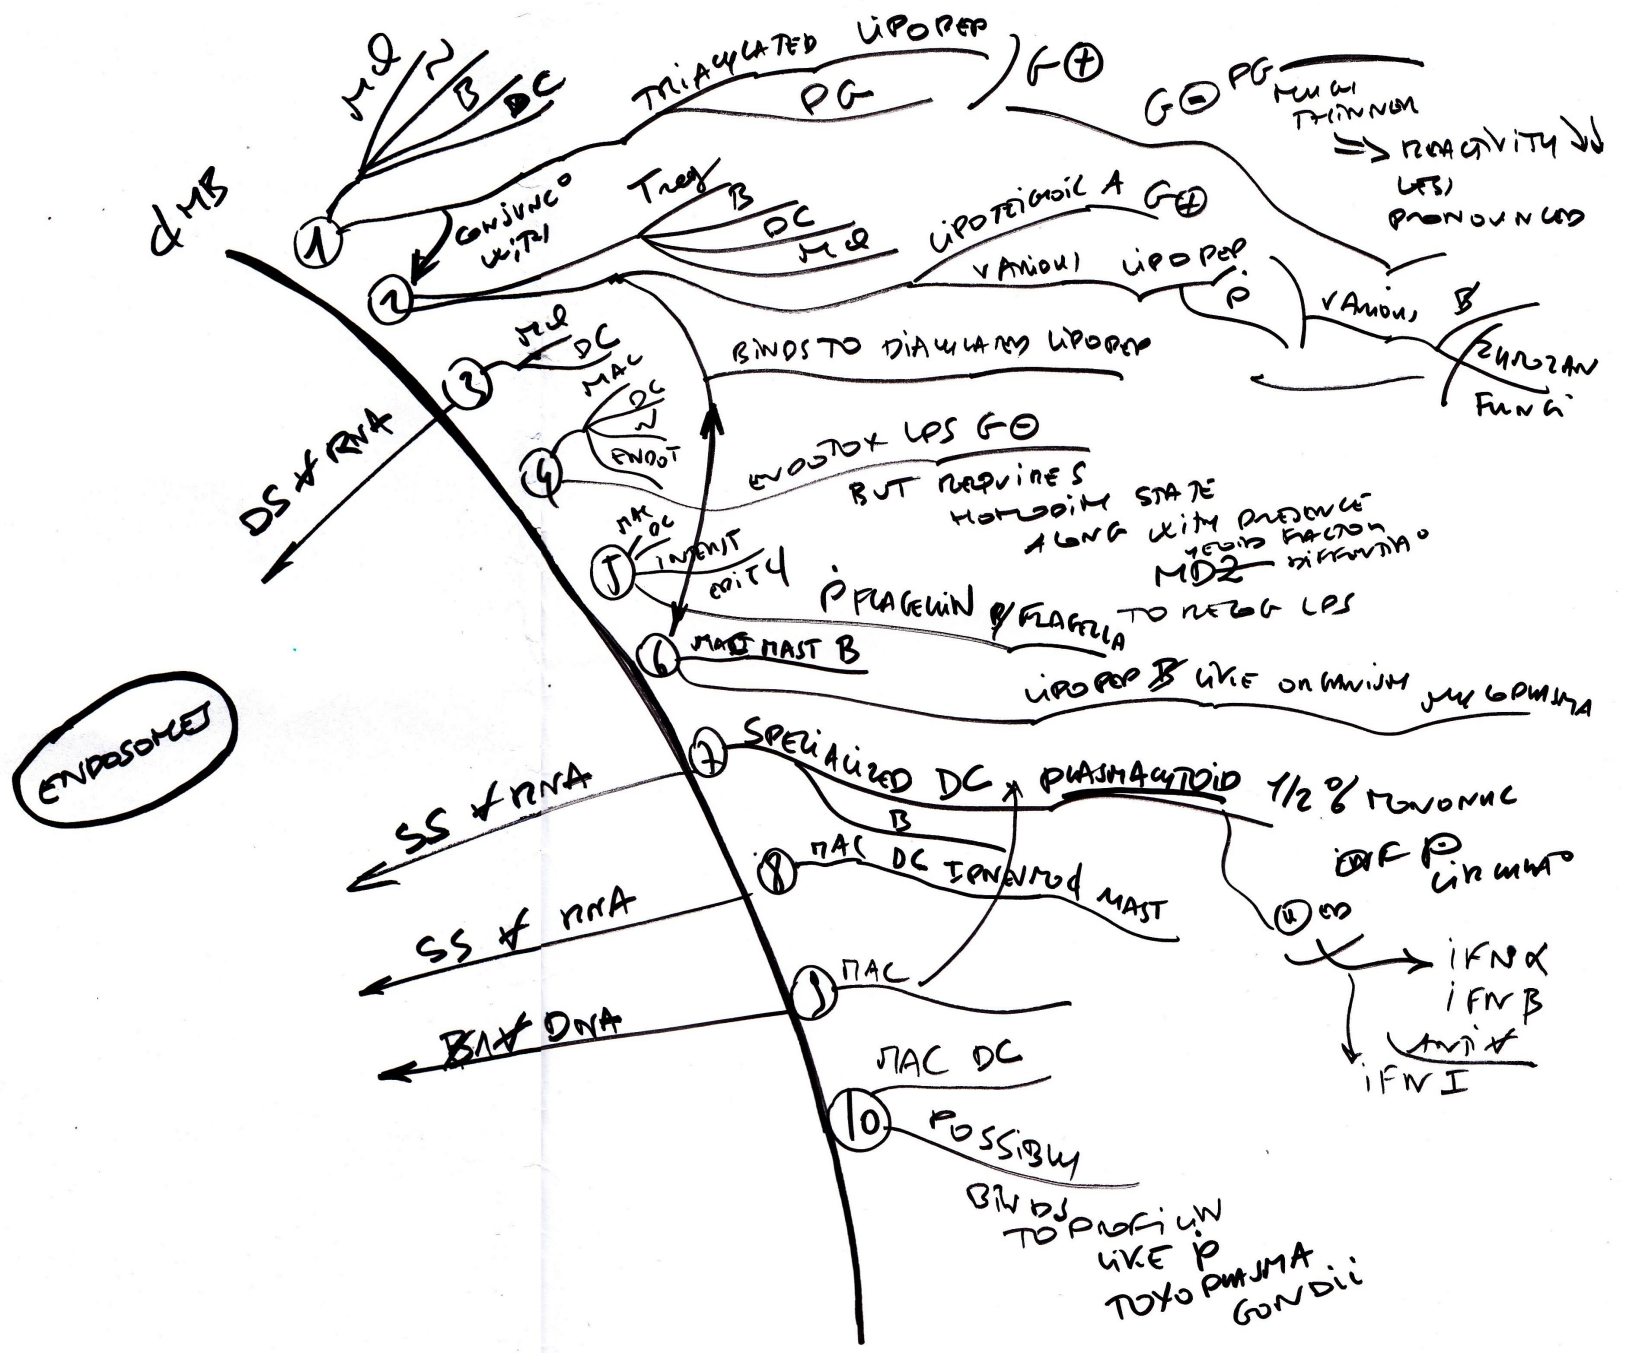 N
B
DC
TRIACYLATED LIPOPEP
PG
G⊕
G⊖ PG
MUCH
THINNER
=> REACTIVITY ↓↓
LESS
PRONOUNCED
dMB
1
CONJUNC°
WITH
2
Treg
B
DC
LIPOTEICHOIC A G⊕
VARIOUS LIPOPEP
P
VARIOUS B
ZYMOZAN
FUNGI
BINDS TO DIACYLATED LIPOPEP
3
DC
DS RNA
4
MAC
DC
N
ENDOT
ENDOTOX LPS G⊖
BUT REQUIRES
HOMODIM STATE
ALONG WITH PRESENCE
MD2
TO RECOG LPS
5
MAC
DC
INTEST
EPIT
P FLAGELLIN B/FLAGELLA
6 MAC MAST B
LIPOPEP B LIKE ORGANISM MYCOPLASMA
ENDOSOMES
7 SPECIALIZED DC PLASMACYTOID 1/2 % MONONUC
B
SS RNA
8 MAC DC MAST
P
CIRCULAT°
SS RNA
9 MAC
IFN α
IFN β
ANTI
IFN I
DNA
10
MAC DC
POSSIBLY
BINDS
TO PROFILIN
LIKE P
TOXOPLASMA
GONDII